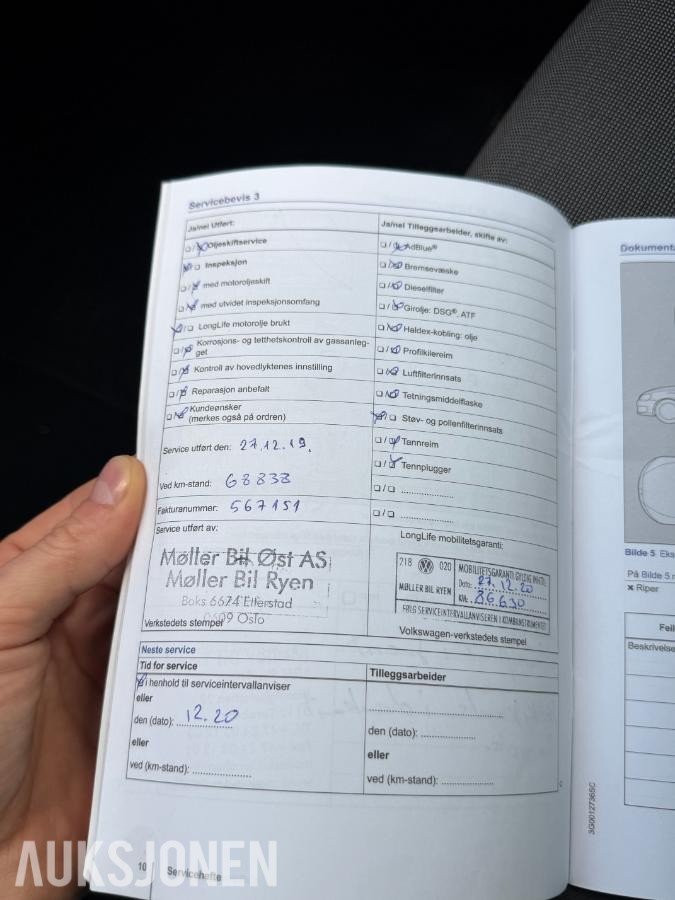 Servicebevis 3
Ja/nei Utført:
☐/☒ Oljeskiftservice
☒/☐ Inspeksjon
☐/☒ med motoroljeskift
☐/☒ med utvidet inspeksjonsomfang
☒/☐ LongLife motorolje brukt
☐/☒ Korrosjons- og tetthetskontroll av gassanleg-
get
☐/☒ Kontroll av hovedlyktenes innstilling
☐/☒ Reparasjon anbefalt
☐/☒ Kundeønsker
(merkes også på ordren)
Service utført den: 27.12.19.
Ved km-stand: 68838
Fakturanummer: 567151
Service utført av:
Møller Bil Øst AS
Møller Bil Ryen
Boks 6674 Etterstad
0609 Oslo
Verkstedets stempel
Ja/nei Tilleggsarbeider, skifte av:
☐/☒ AdBlue®
☐/☒ Bremsevæske
☐/☒ Dieselfilter
☐/☒ Girolje: DSG®, ATF
☐/☒ Haldex-kobling: olje
☐/☒ Profilkilereim
☐/☒ Luftfilterinnsats
☐/☒ Tetningsmiddelflaske
☒/☐ Støv- og pollenfilterinnsats
☐/☒ Tannreim
☐/☒ Tennplugger
☐/☐ ....................
☐/☐ ....................
LongLife mobilitetsgaranti:
218 VW 020
MØLLER BIL RYEN
MOBILITETSGARANTI GYLDIG INNTIL
Dato: 27.12.20
KM: 86.630
FØLG SERVICEINTERVALLANVISEREN I KOMBIINSTRUMENTET
Volkswagen-verkstedets stempel
Neste service
Tid for service
☒ i henhold til serviceintervallanviser
eller
den (dato): 12.20
eller
ved (km-stand): ....................
Tilleggsarbeider
........................................
den (dato): ....................
eller
ved (km-stand): ....................
10
Servicehefte
AUKSJONEN
3G0012736SC
Dokument
Bilde 5 Eks
På Bilde 5 m
× Riper
Feil
Beskrivelse